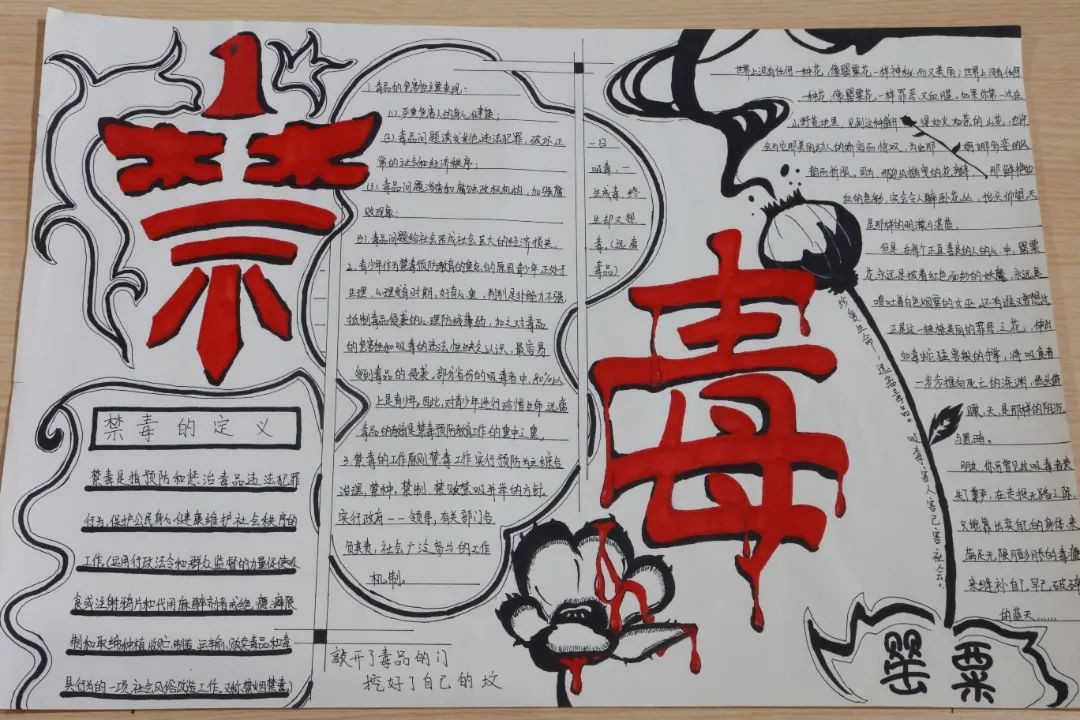 禁
禁毒的定义
禁毒是指预防和惩治毒品违法犯罪
行为,保护公民身心健康维护社会秩序的
工作(运用行政法令和群众监督的力量促使吸
食或注射鸦片和代用麻醉剂者戒绝,
制和取缔种植 制造、运输、贩卖毒品和毒
具行为的一项社会风俗改造工作,
1.毒品的危害性主要表现:
(1).严重危害人的身心健康;
(2)毒品问题诱发其他违法犯罪,破坏正
常的社会和经济秩序;
(3).毒品问题渗透和腐蚀政权机构,加强腐
败现象;
毒品问题给社会造成社会巨大的经济损失。
2.青少年作为禁毒预防教育的重点的原因青少年正处于
生理,心理发育时期,好奇心重,判别是非能力不强
抵制毒品侵袭的心理防线薄弱,加之对毒品
的危害性和吸毒的违法性缺乏认识,最容易
受到毒品的侵袭。部分省份的吸毒者中,80%以
上是青少年。因此,对青少年进行珍惜生命远离
毒品的教育是禁毒预防教育工作的重中之重。
3.禁毒的工作原则禁毒工作实行预防为主综合
治理,禁种,禁制,禁贩禁吸并举的方针。
实行政府一一领导,有关部门各
负其责,社会广泛参与的工作
机制。
一日
吸毒,一
生戒毒,终
生却又想
毒。(远离
毒品)
敲开了毒品的门
挖好了自己的坟
毒
世界上没有任何一种花,像罂粟花一样神秘而又美丽;世界上没有任何
一种花,像罂粟花一样罪恶又血腥,如果你第一次在
山野荒地里,见到这种 如火如荼的山花,也许
会为它那美丽动人的娇容而惊叹,为它那 婀娜多姿的风
韵而折服。因为,那迎风摇曳的花瓣 那鲜艳如
红的色彩,实会令人醉卧花丛,抬头仰望天
是那样的明澈与湛蓝。
但是,在每个正直善良的人的心中,罂粟
花永远是披着红色面纱的妖魔,永远是
喷吐着白色烟雾的女巫,还有谁又曾想过
正是这一株株美丽的罪恶之花,伸出
如毒蛇猛兽般的手掌,将吸食者
一步步推向死亡的深渊,
天是那样的阴沉
与黑暗。
朋友,你可曾见过吸毒者丧
失了尊严,在走投无路之际,
只能靠出卖自己的身体来
满足无限膨胀的毒瘾
来缝补自己早已破碎
的蓝天……
珍爱生命!远离毒品。吸毒害人害己害社会。
罂粟